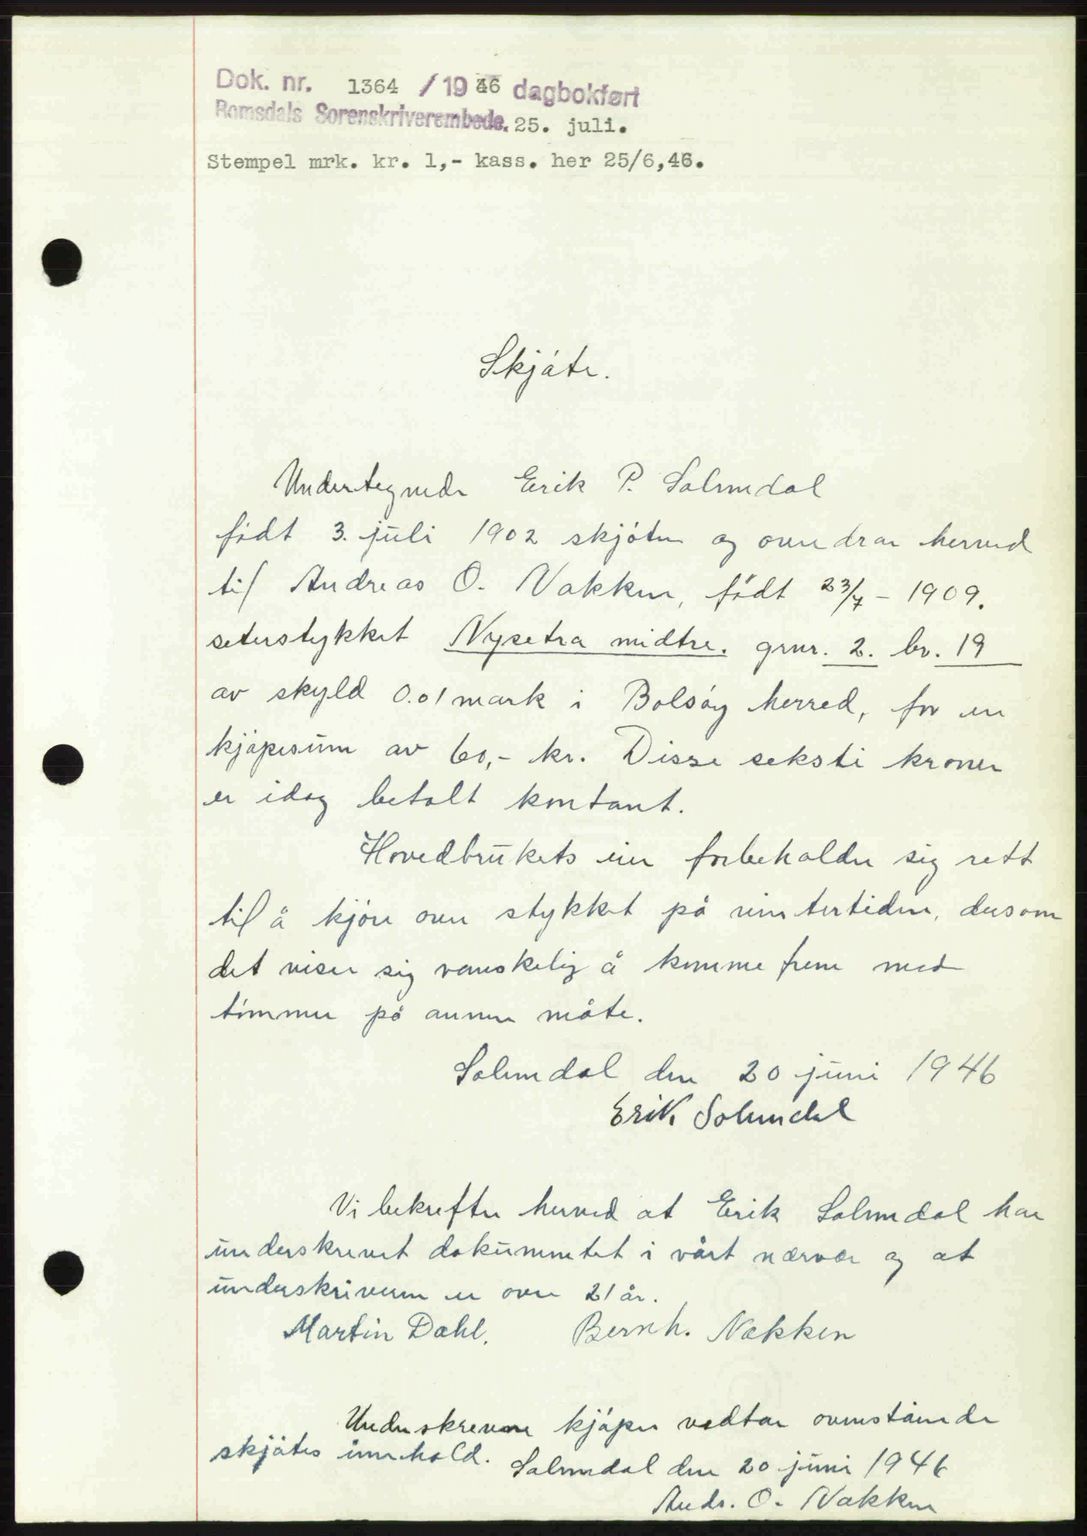 Dok. nr. 1364 / 1946 dagbokført
Romsdals Sorenskriverembede. 25. juli.
Stempel mrk. kr. 1,- kass. her 25/6,46.
Skjøte.
Undertegnede Erik P. Solemdal
født 3. juli 1902 skjøter og overdrar herved
til Andreas O. Nakken, født 23/7 - 1909.
seterstykket Nysetra midtre. grnr. 2. br. 19
av skyld 0.01 mark i Bolsøy herred, for en
kjøpesum av 60,- kr. Disse seksti kroner
er idag betalt kontant.
Hovedbrukets eier forbeholder sig rett
til å kjøre over stykket på vintertiden, dersom
det viser sig vanskelig å komme frem med
tømmer på annen måte.
Solemdal den 20 juni 1946
Erik Solemdal
Vi bekrefter herved at Erik Solemdal har
underskrevet dokumentet i vårt nærvær og at
underskriveren er over 21 år.
Martin Dahl. Bernh. Nakken
Underskrevne kjøper vedtar ovenstående
skjøtes innhold. Solemdal den 20 juni 1946
Andr. O. Nakken